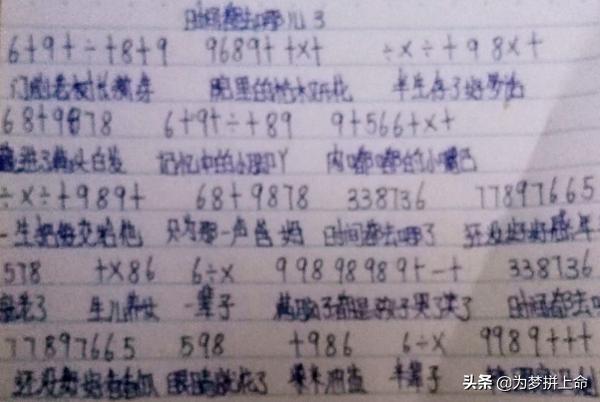 时间都去哪儿了
6+9+÷+8+9 9689++x+ ÷x÷+98x+
门前老树长新芽 院里的枯木开花 半生存了好多话
68+9878 6+9+÷+89 9+566+x+
进了满头白发 记忆中的小脚丫 肉嘟嘟的小嘴巴
÷x÷+989+ 68+9878 338736 77897665
一生把爱交给他 只为那一声爸妈 时间都去哪了 还没好好感年
578 +x86 6÷x 99898989+-+ 338736
老了 生儿养女 一辈子 满脑子都是孩子哭了笑了 时间都去
77897665 598 +986 6÷x 9989+++
还没好好看看 眼睛就花了 柴米油盐 半辈子
头条@为梦拼上命